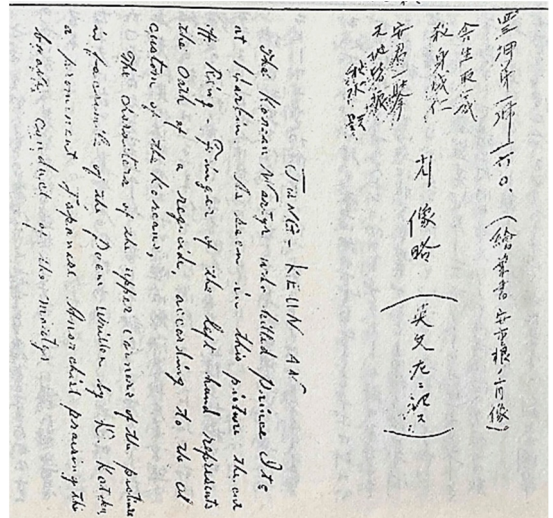 一六〇、(繪葉書安重根ノ肖像)
舍生取義
殺身成仁
安君一擧
天地皆振
秋水題
肖像略 (英文左ニ記ス)
JUNG-KEUN AN
The Korean Martyr who killed Prince Ito
at Harbin. As seen in this picture the cut
off Ring-Finger of the left hand represents
the oath of a regicide, according to the ol
custom of the Koreans,
The characters of the upper corner of the picture
is facsimile of the Poem written by D. Kotoku,
a prominent Japanese Anarchist praising the
conduct of the martyr